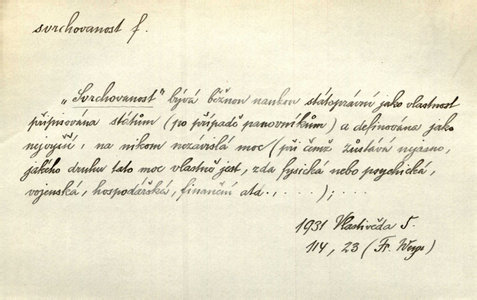 svrchovanost f.
„Svrchovanost" bývá běžnou naukou státoprávní jako vlastnost
připisována státům (po případě panovníkům) a definována jako
nejvyšší, na nikom nezávislá moc (při čemž zůstává nejasno,
jakého druhu tato moc vlastně jest, zda fysická nebo psychická,
vojenská, hospodářská, finanční atd., . . . .); . . .
1931 Vlastivěda 5.
114, 23 (Fr. Weyr)